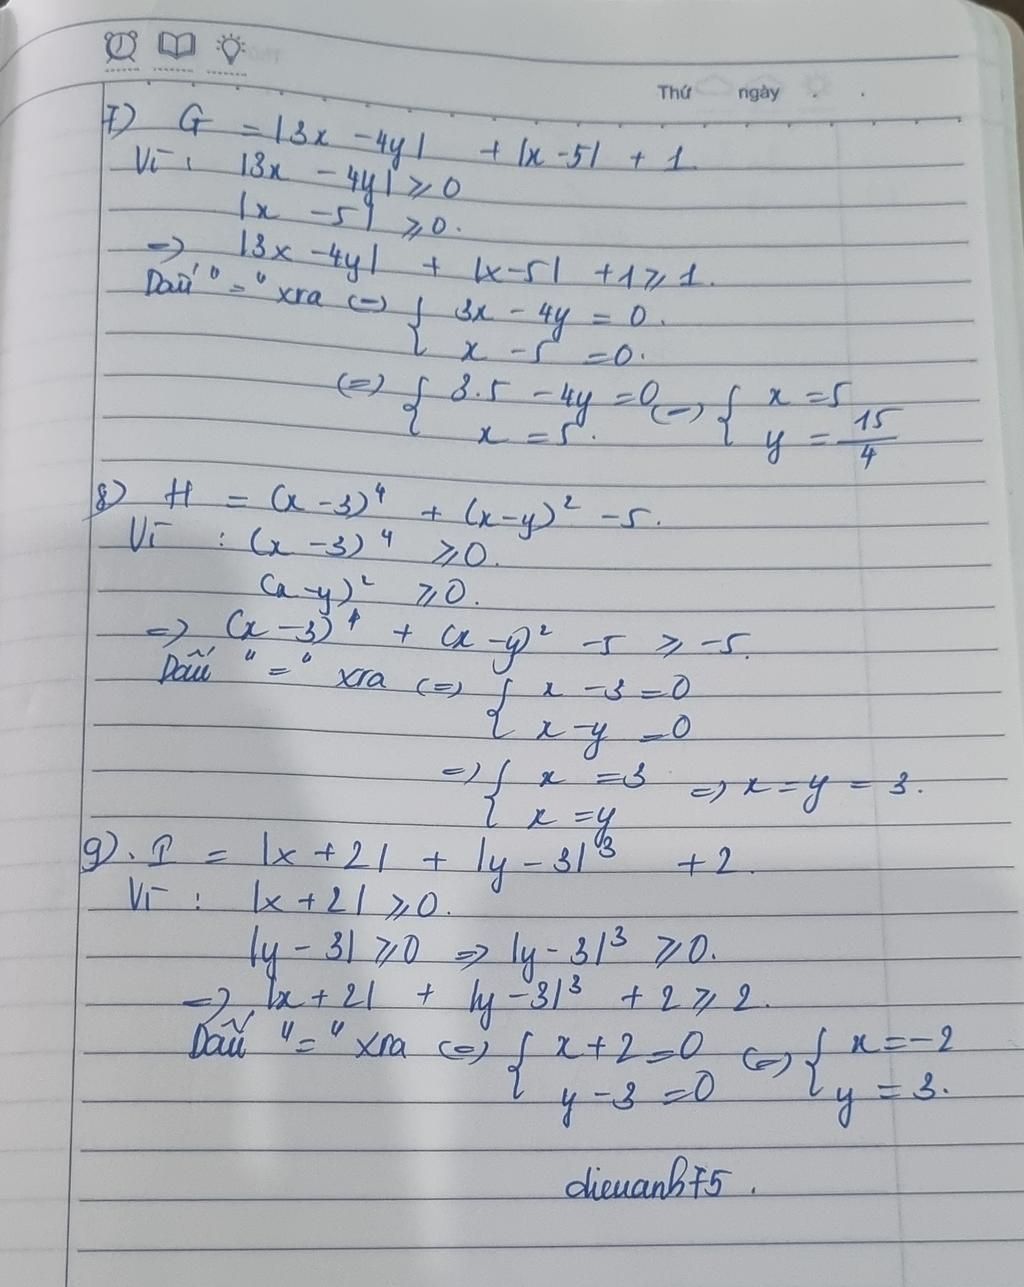 Thứ ngày
7) G = |3x - 4y| + |x - 5| + 1
Vì : |3x - 4y| ⩾ 0
|x - 5| ⩾ 0.
=> |3x - 4y| + |x - 5| + 1 ⩾ 1.
Dấu "=" xra (=) { 3x - 4y = 0.
x - 5 = 0.
(=) { 3.5 - 4y = 0 (=) { x = 5
x = 5. y = 15/4
8) H = (x - 3)⁴ + (x - y)² - 5.
Vì : (x - 3)⁴ ⩾ 0.
(x - y)² ⩾ 0.
=> (x - 3)⁴ + (x - y)² - 5 ⩾ -5.
Dấu "=" xra (=) { x - 3 = 0
x - y = 0
=> { x = 3 => x = y = 3.
x = y
9). I = |x + 2| + |y - 3|³ + 2.
Vì : |x + 2| ⩾ 0.
|y - 3| ⩾ 0 => |y - 3|³ ⩾ 0.
=> |x + 2| + |y - 3|³ + 2 ⩾ 2.
Dấu "=" xra (=) { x + 2 = 0 (=) { x = -2
y - 3 = 0 y = 3.
dieuanh75.